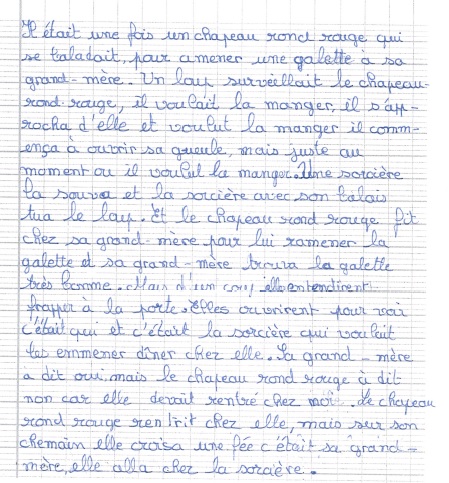 Il était une fois un chapeau rond rouge qui
se baladait, pour amener une galette à sa
grand-mère. Un loup surveillait le chapeau-
rond-rouge, il voulait la manger, il s'app-
rocha d'elle et voulut la manger il comm-
ença à ouvrir sa gueule, mais juste au
moment ou il voulut la manger. Une sorcière
la sauva et la sorcière avec son balais
tua le loup. Et le chapeau rond rouge fit
chez sa grand-mère pour lui ramener la
galette et sa grand-mère trouva la galette
très bonne. Mais d'un coup elles entendirent
frapper à la porte. Elles ouvrirent pour voir
c'était qui et c'était la sorcière qui voulait
les emmener dîner chez elle. La grand-mère
à dit oui mais le chapeau rond rouge à dit
non car elle devait rentré chez moi. Le chapeau
rond rouge rentrit chez elle, mais sur son
chemain elle croisa une fée c'était sa grand-
mère, elle alla chez la sorcière.